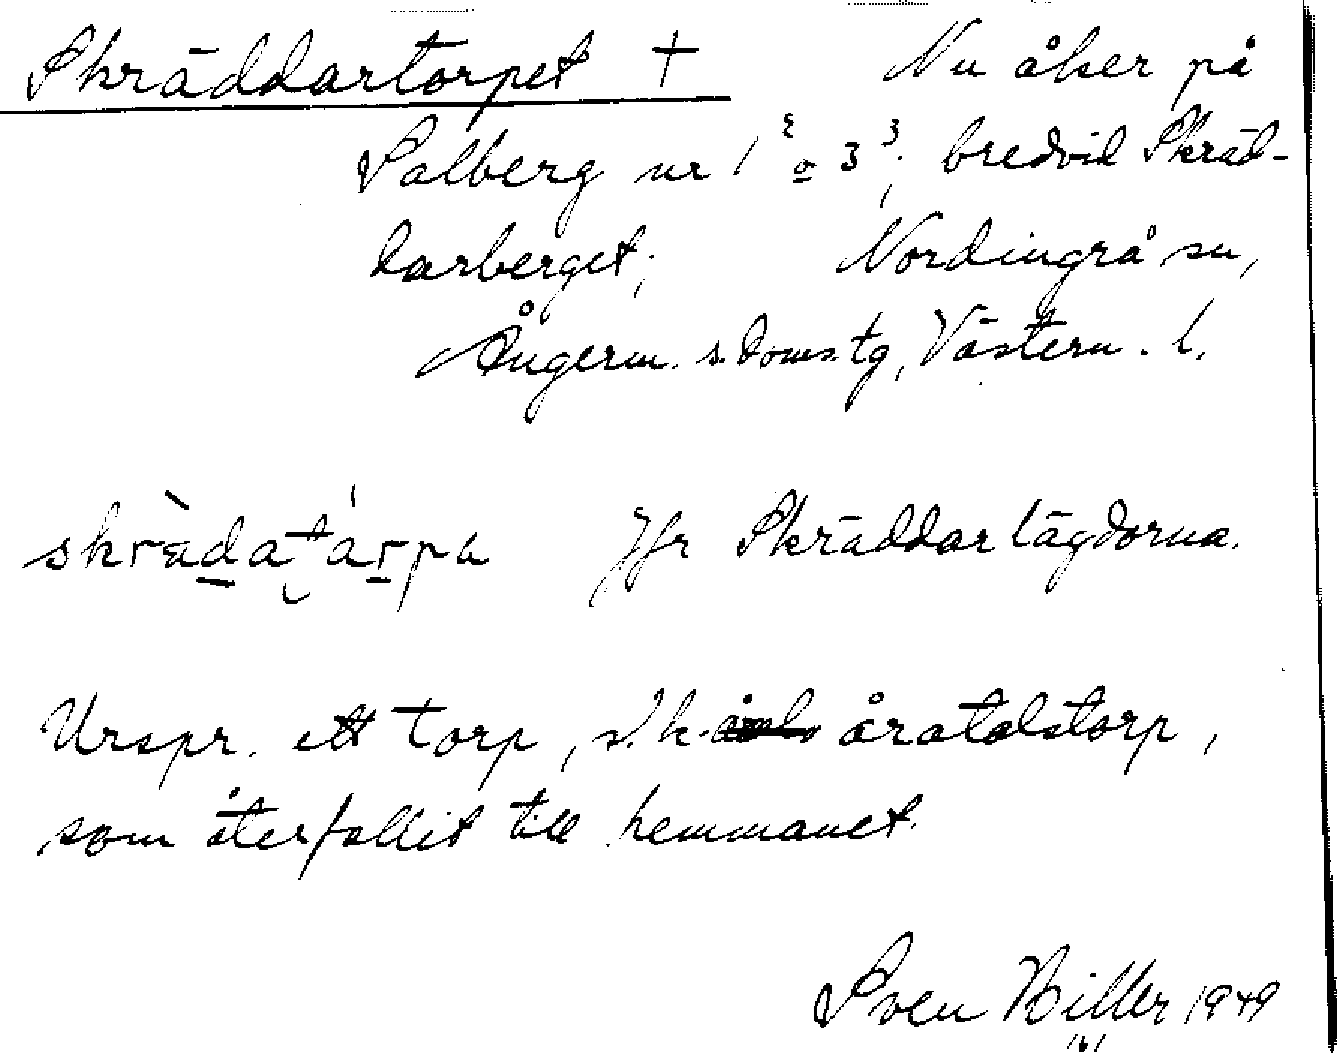 Skräddartorpet † Nu åker på
Salberg nr 1² o 3³; bredvid Skräd-
darberget; Nordingrå sn,
Ångerm. s. doms. tg, Västern. l.
skrädatarpa Jfr Skräddarlägdorna.
Urspr. ett torp, s.k. åratalstorp,
som återfallit till hemmanet.
Sven Biller 1949